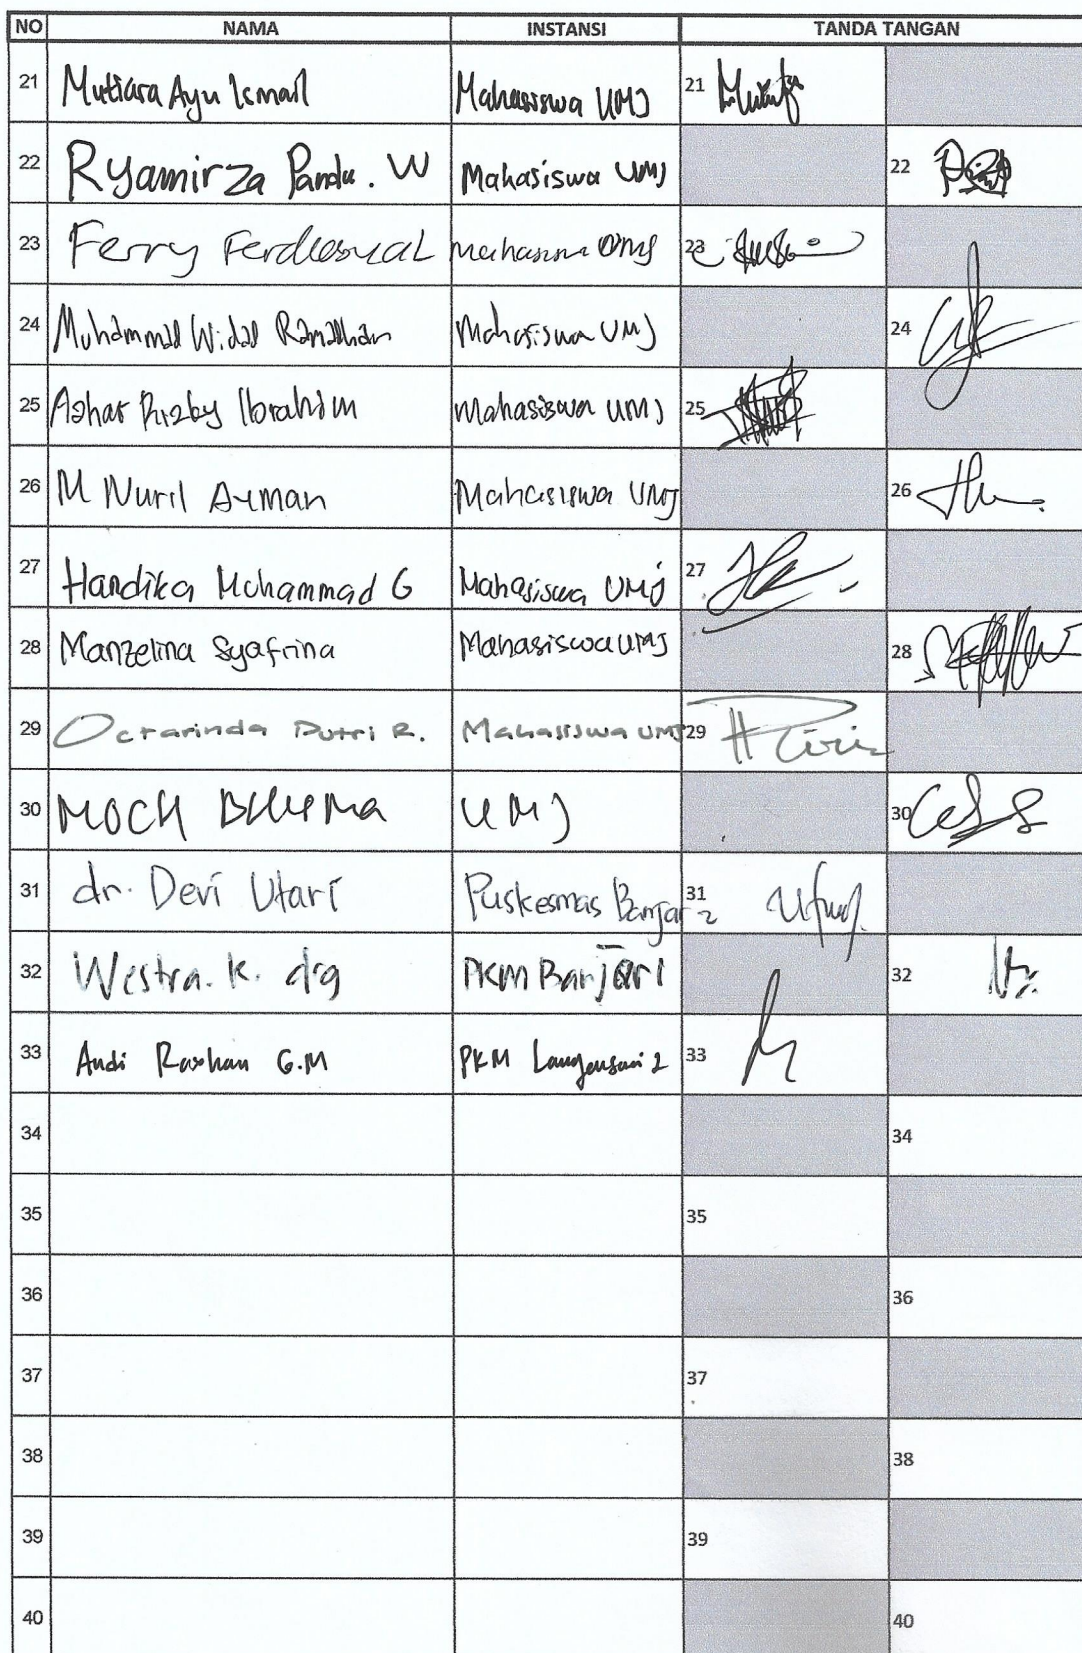 NO NAMA INSTANSI TANDA TANGAN
21 Mutiara Ayu Ismail Mahasiswa UMJ 21
22 Ryamirza Pandu. W Mahasiswa UMJ 22
23 Ferry Mahasiswa UMJ 23
24 Muhammad Widad Ramadhan Mahasiswa UMJ 24
25 Azhar Rizby Ibrahim Mahasiswa UMJ 25
26 M Nuril Mahasiswa UMJ 26
27 Handika Muhammad G Mahasiswa UMJ 27
28 Manzelina Syafrina Mahasiswa UMJ 28
29 Octarinda Putri R. Mahasiswa UMJ 29
30 MOCH UMJ 30
31 dr. Devi Utari Puskesmas Banjar 2 31
32 Westra. K. drg PKM Banjar 1 32
33 Andi Rayhan G.M PKM Langensari 2 33
34 34
35 35
36 36
37 37
38 38
39 39
40 40